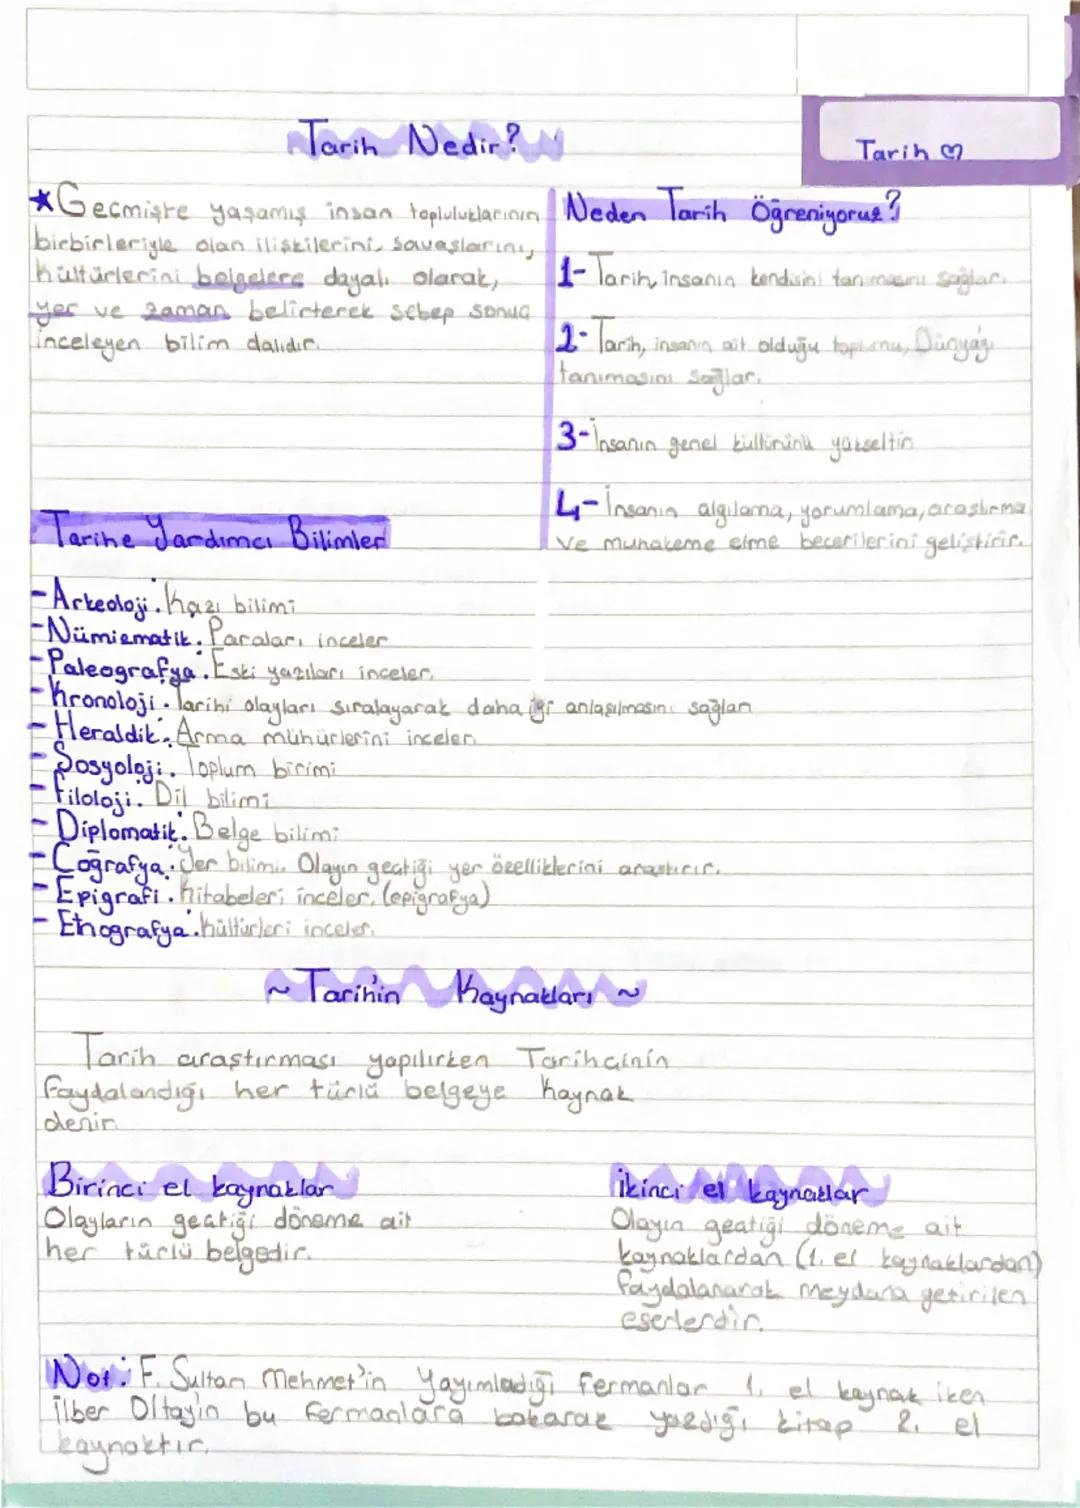 Tarih Nedir?
Tarih
*Geçmişte yaşamış insan topluluklarının
birbirleriyle olan ilişkilerini, savaşlarını,
kültürlerini belgelere dayalı olarak,
yer ve zaman belirterek sebep sonuç
inceleyen bilim dalıdır.
Neden Tarih Öğreniyoruz?
1- Tarih, insanın kendisini tanımasını sağlar.
2- Tarih, insanın ait olduğu toplumu, Dünyayı
tanımasını sağlar.
3- İnsanın genel kültürünü yükseltir.
4- İnsanın algılama, yorumlama, araştırma
ve muhakeme etme becerilerini geliştirir.
Tarihe Yardımcı Bilimler
-Arkeoloji: Kazı bilimi
-Nümizmatik: Paraları inceler
-Paleografya: Eski yazıları inceler.
-Kronoloji: Tarihi olayları sıralayarak daha iyi anlaşılmasını sağlar
-Heraldik: Arma mühürlerini inceler.
-Sosyoloji: Toplum birimi
-Filoloji: Dil bilimi
-Diplomatik: Belge bilimi
-Coğrafya: Yer bilimi. Olayın geçtiği yer özelliklerini araştırır.
-Epigrafi: kitabeleri inceler. (epigrafya)
-Etnografya: kültürleri inceler.
~ Tarih'in Kaynakları ~
Tarih araştırması yapılırken Tarihçinin
faydalandığı her türlü belgeye kaynak
denir.
Birinci el kaynaklar
Olayların geçtiği döneme ait
her türlü belgedir.
İkinci el kaynaklar
Olayın geçtiği döneme ait
kaynaklardan (1. el kaynaklardan)
faydalanarak meydana getirilen
eserlerdir.
Not: F. Sultan Mehmet'in Yayımladığı fermanlar 1. el kaynak iken
İlber Oltay'ın bu fermanlara bakarak yazdığı kitap 2. el
kaynaktır.